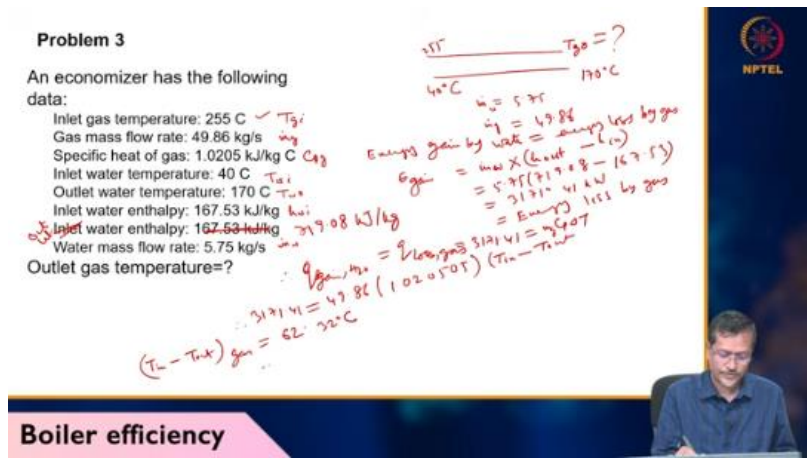 Problem 3
An economizer has the following
data:
Inlet gas temperature: 255 C Tgi
Gas mass flow rate: 49.86 kg/s
Specific heat of gas: 1.0205 kJ/kg C Cpg
Inlet water temperature: 40 C Twi
Outlet water temperature: 170 C Two
Inlet water enthalpy: 167.53 kJ/kg hwi
Inlet water enthalpy: 167.53 kJ/kg 719.08 kJ/kg
Water mass flow rate: 5.75 kg/s
Outlet gas temperature=?
255 Tgo = ?
40°C 170°C
= 5.75
= 49.86
Energy gain by water = energy loss by gas
Egain = mw x (hout - hin)
= 5.75 (719.08 - 167.53)
= 3171.41 kW
= Energy loss by gas
∴ qgain, H2O = qloss, gas = 3171.41 = mgCpΔT
∴ 3171.41 = 49.86 (1.020505) (Tin - Tout
(Tin - Tout) gas = 62.32°C
∴
NPTEL
Boiler efficiency